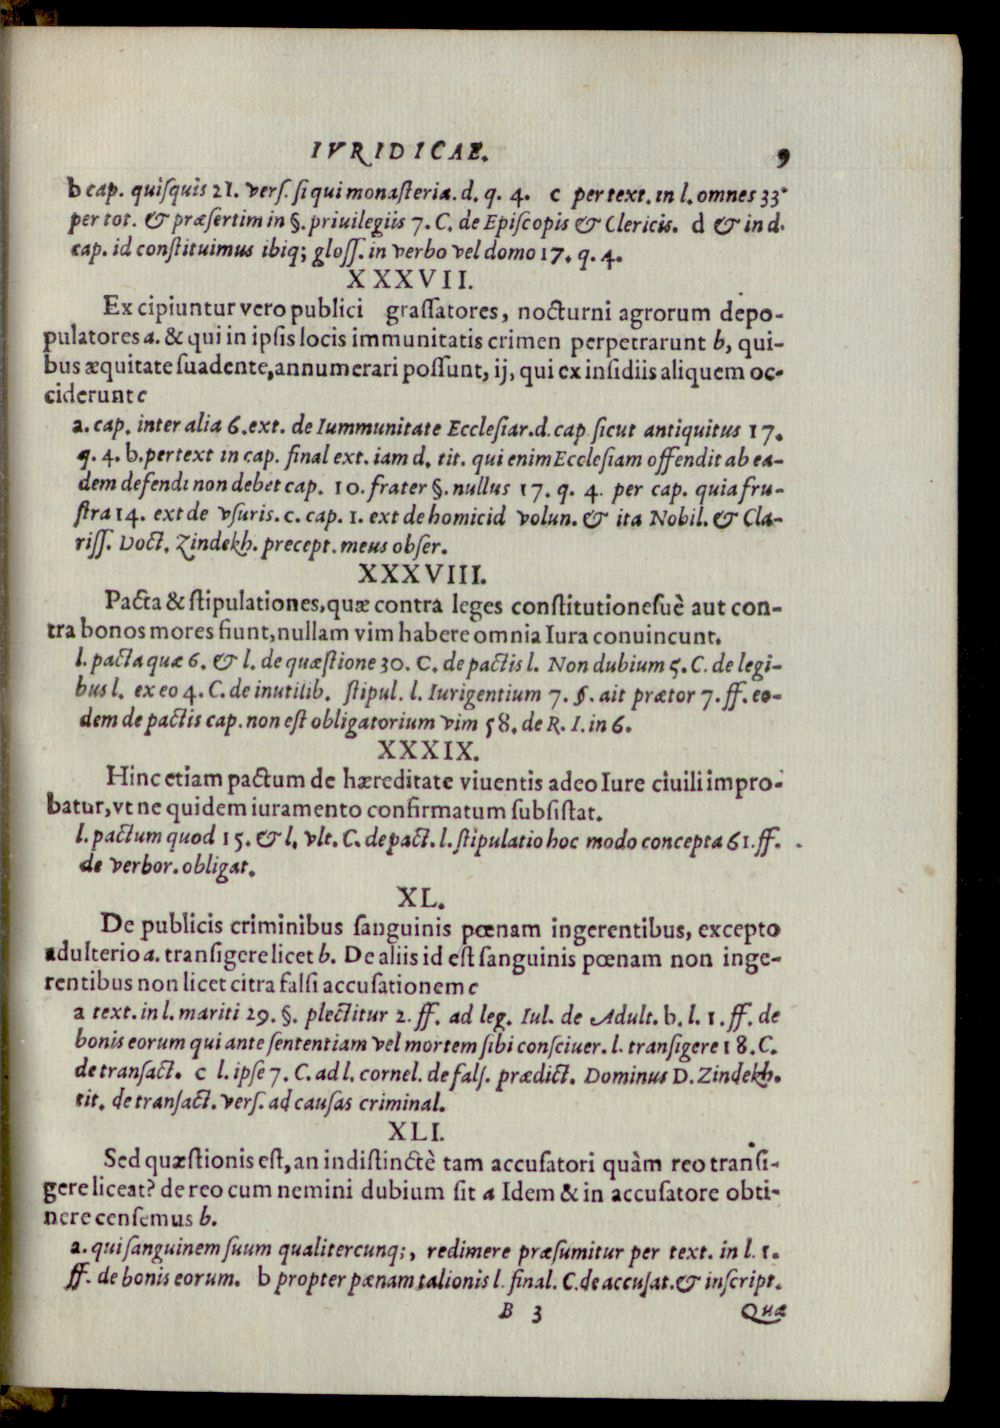 IVRIDICAE. 9
b cap. quiſquis 21. verſ. ſi qui monaſteria. d. q. 4. c per text. in l. omnes 33.
per tot. & præſertim in §. priuilegiis 7. C. de Epiſcopis & Clericis. d & in d.
cap. id conſtituimus ibiq; gloſſ. in verbo vel domo 17. q. 4.
XXXVII.
Excipiuntur vero publici graſſatores, nocturni agrorum depo-
pulatores a. & qui in ipſis locis immunitatis crimen perpetrarunt b, qui-
bus æquitate ſuadente, annumerari poſſunt, ij, qui ex inſidiis aliquem oc-
ciderunt c
a. cap. inter alia 6. ext. de Iummunitate Eccleſiar. d. cap ſicut antiquitus 17.
q. 4. b. per text in cap. final ext. iam d. tit. qui enim Eccleſiam offendit ab ea-
dem defendi non debet cap. 10. frater §. nullus 17. q. 4. per cap. quia fru-
ſtra 14. ext de vſuris. c. cap. 1. ext de homicid volun. & ita Nobil. & Cla-
riſſ. Doct. Zindekh. precept. meus obſer.
XXXVIII.
Pacta & ſtipulationes, quæ contra leges conſtitutioneſuè aut con-
tra bonos mores fiunt, nullam vim habere omnia Iura conuincunt.
l. pacta quæ 6. & l. de quæſtione 30. C. de pactis l. Non dubium 5. C. de legi-
bus l. ex eo 4. C. de inutilib. ſtipul. l. Iurigentium 7. §. ait prætor 7. ff. eo-
dem de pactis cap. non eſt obligatorium vim 58. de R. I. in 6.
XXXIX.
Hinc etiam pactum de hæreditate viuentis adeo Iure ciuili impro-
batur, vt ne quidem iuramento confirmatum ſubſiſtat.
l. pactum quod 15. & l. vlt. C. de pact. l. ſtipulatio hoc modo concepta 61. ff.
de verbor. obligat.
XL.
De publicis criminibus ſanguinis pœnam ingerentibus, excepto
adulterio a. tranſigere licet b. De aliis id eſt ſanguinis pœnam non inge-
rentibus non licet citra falſi accuſationem c
a text. in l. mariti 29. §. plectitur 2. ff. ad leg. Iul. de Adult. b. l. 1. ff. de
bonis eorum qui ante ſententiam vel mortem ſibi conſciuer. l. tranſigere 18. C.
de tranſact. c l. ipſe 7. C. ad l. cornel. de falſ. prædict. Dominus D. Zindekh.
tit. de tranſact. verſ. ad cauſas criminal.
XLI.
Sed quæſtionis eſt, an indiſtinctè tam accuſatori quàm reo tranſi-
gere liceat? de reo cum nemini dubium ſit a Idem & in accuſatore obti-
nere cenſemus b.
a. qui ſanguinem ſuum qualitercunq;, redimere præſumitur per text. in l. 1.
ff. de bonis eorum. b propter pænam talionis l. final. C. de accuſat. & inſcript.
B 3 Quæ